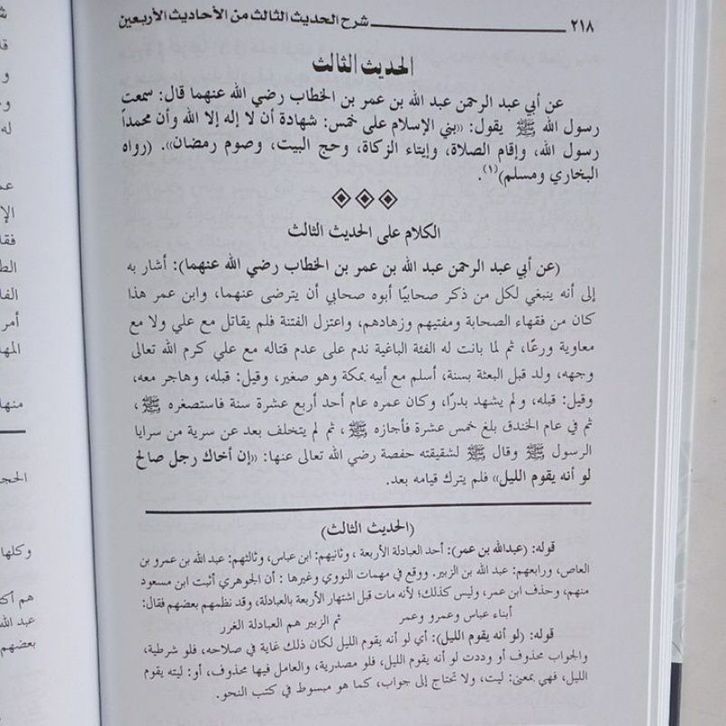 ٢١٨ شرح الحديث الثالث من الأحاديث الأربعين
الحديث الثالث
عن أبي عبد الرحمن عبد الله بن عمر بن الخطاب رضي الله عنهما قال: سمعت
رسول الله ﷺ يقول: «بني الإسلام على خمس: شهادة أن لا إله إلا الله وأن محمداً
رسول الله، وإقام الصلاة، وإيتاء الزكاة، وحج البيت، وصوم رمضان». (رواه
البخاري ومسلم)(١).
الكلام على الحديث الثالث
(عن أبي عبد الرحمن عبد الله بن عمر بن الخطاب رضي الله عنهما): أشار به
إلى أنه ينبغي لكل من ذكر صحابيًا أبوه صحابي أن يترضى عنهما، وابن عمر هذا
كان من فقهاء الصحابة ومفتيهم وزهادهم، واعتزل الفتنة فلم يقاتل مع علي ولا مع
معاوية ورعًا، ثم لما بانت له الفئة الباغية ندم على عدم قتاله مع علي كرم الله تعالى
وجهه، ولد قبل البعثة بسنة، أسلم مع أبيه بمكة وهو صغير، وقيل: قبله، وهاجر معه،
وقيل: قبله، ولم يشهد بدرًا، وكان عمره عام أحد أربع عشرة سنة فاستصغره ﷺ،
ثم في عام الخندق بلغ خمس عشرة فأجازه ﷺ، ثم لم يتخلف بعد عن سرية من سرايا
الرسول ﷺ وقال ﷺ لشقيقته حفصة رضي الله تعالى عنها: «إن أخاك رجل صالح
لو أنه يقوم الليل» فلم يترك قيامه بعد.
(الحديث الثالث)
قوله: (عبدالله بن عمر): أحد العبادلة الأربعة، وثانيهم: ابن عباس، وثالثهم: عبد الله بن عمرو بن
العاص، ورابعهم: عبد الله بن الزبير. ووقع في مهمات النووي وغيرها: أن الجوهري أثبت ابن مسعود
منهم، وحذف ابن عمر، وليس كذلك؛ لأنه مات قبل اشتهار الأربعة بالعبادلة، وقد نظمهم بعضهم فقال:
أبناء عباس وعمرو وعمر ثم الزبير هم العبادلة الغرر
قوله: (لو أنه يقوم الليل): أي لو أنه يقوم الليل لكان ذلك غاية في صلاحه، فلو شرطية،
والجواب محذوف أو وددت لو أنه يقوم الليل، فلو مصدرية، والعامل فيها محذوف، أو: ليته يقوم
الليل، فهي بمعنى: ليت، ولا تحتاج إلى جواب، كما هو مبسوط في كتب النحو.